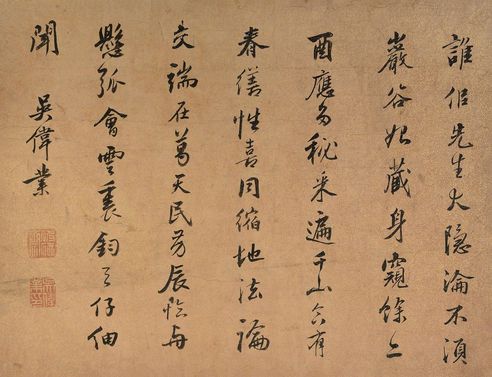 誰似先生大隱淪不須
巖谷始藏身窺餘二
酉應多秘采遍千山合有
春繕性喜同縮地法論
交端在葛天民芳辰恰與
懸弧會雲裏鈞天仔細
聞 吳偉業